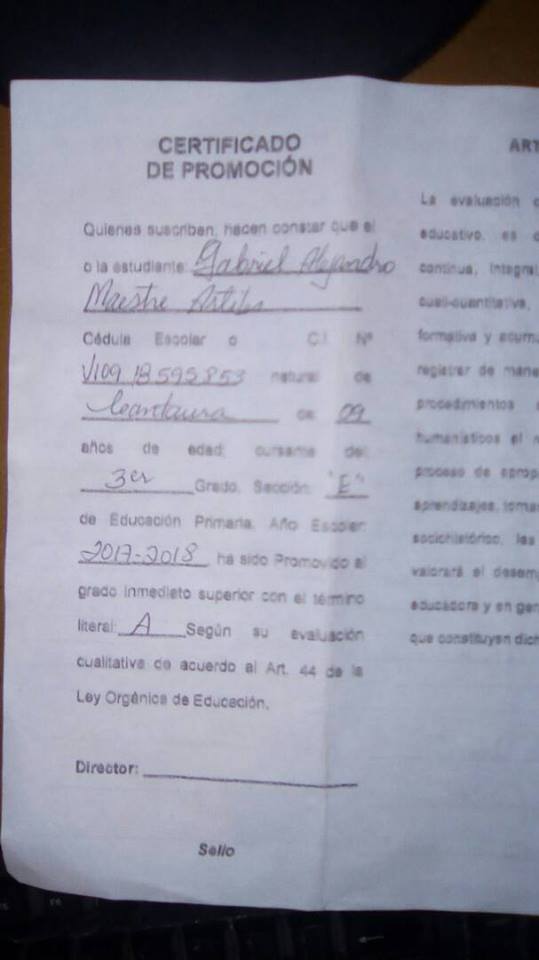 CERTIFICADO
DE PROMOCIÓN
Quienes suscriben, hacen constar que el
o la estudiante: Gabriel Alejandro
Maestre
Cédula Escolar o C.I. Nº
V109 18595853 natural de
de 09
años de edad, cursante del
3er Grado, Sección: "E"
de Educación Primaria, Año Escolar:
2017-2018 ha sido Promovido al
grado inmediato superior con el término
literal: A Según su evaluación
cualitativa de acuerdo al Art. 44 de la
Ley Orgánica de Educación.
Director:
Sello
ART
La evaluación
educativo, es
continua, integral
cuali-cuantitativa,
formativa y acum
registrar de mane
procedimientos
humanísticos el
proceso de aprop
aprendizajes, toma
sociohistórico, las
valorará el desem
educadora y en gen
que constituyen dich